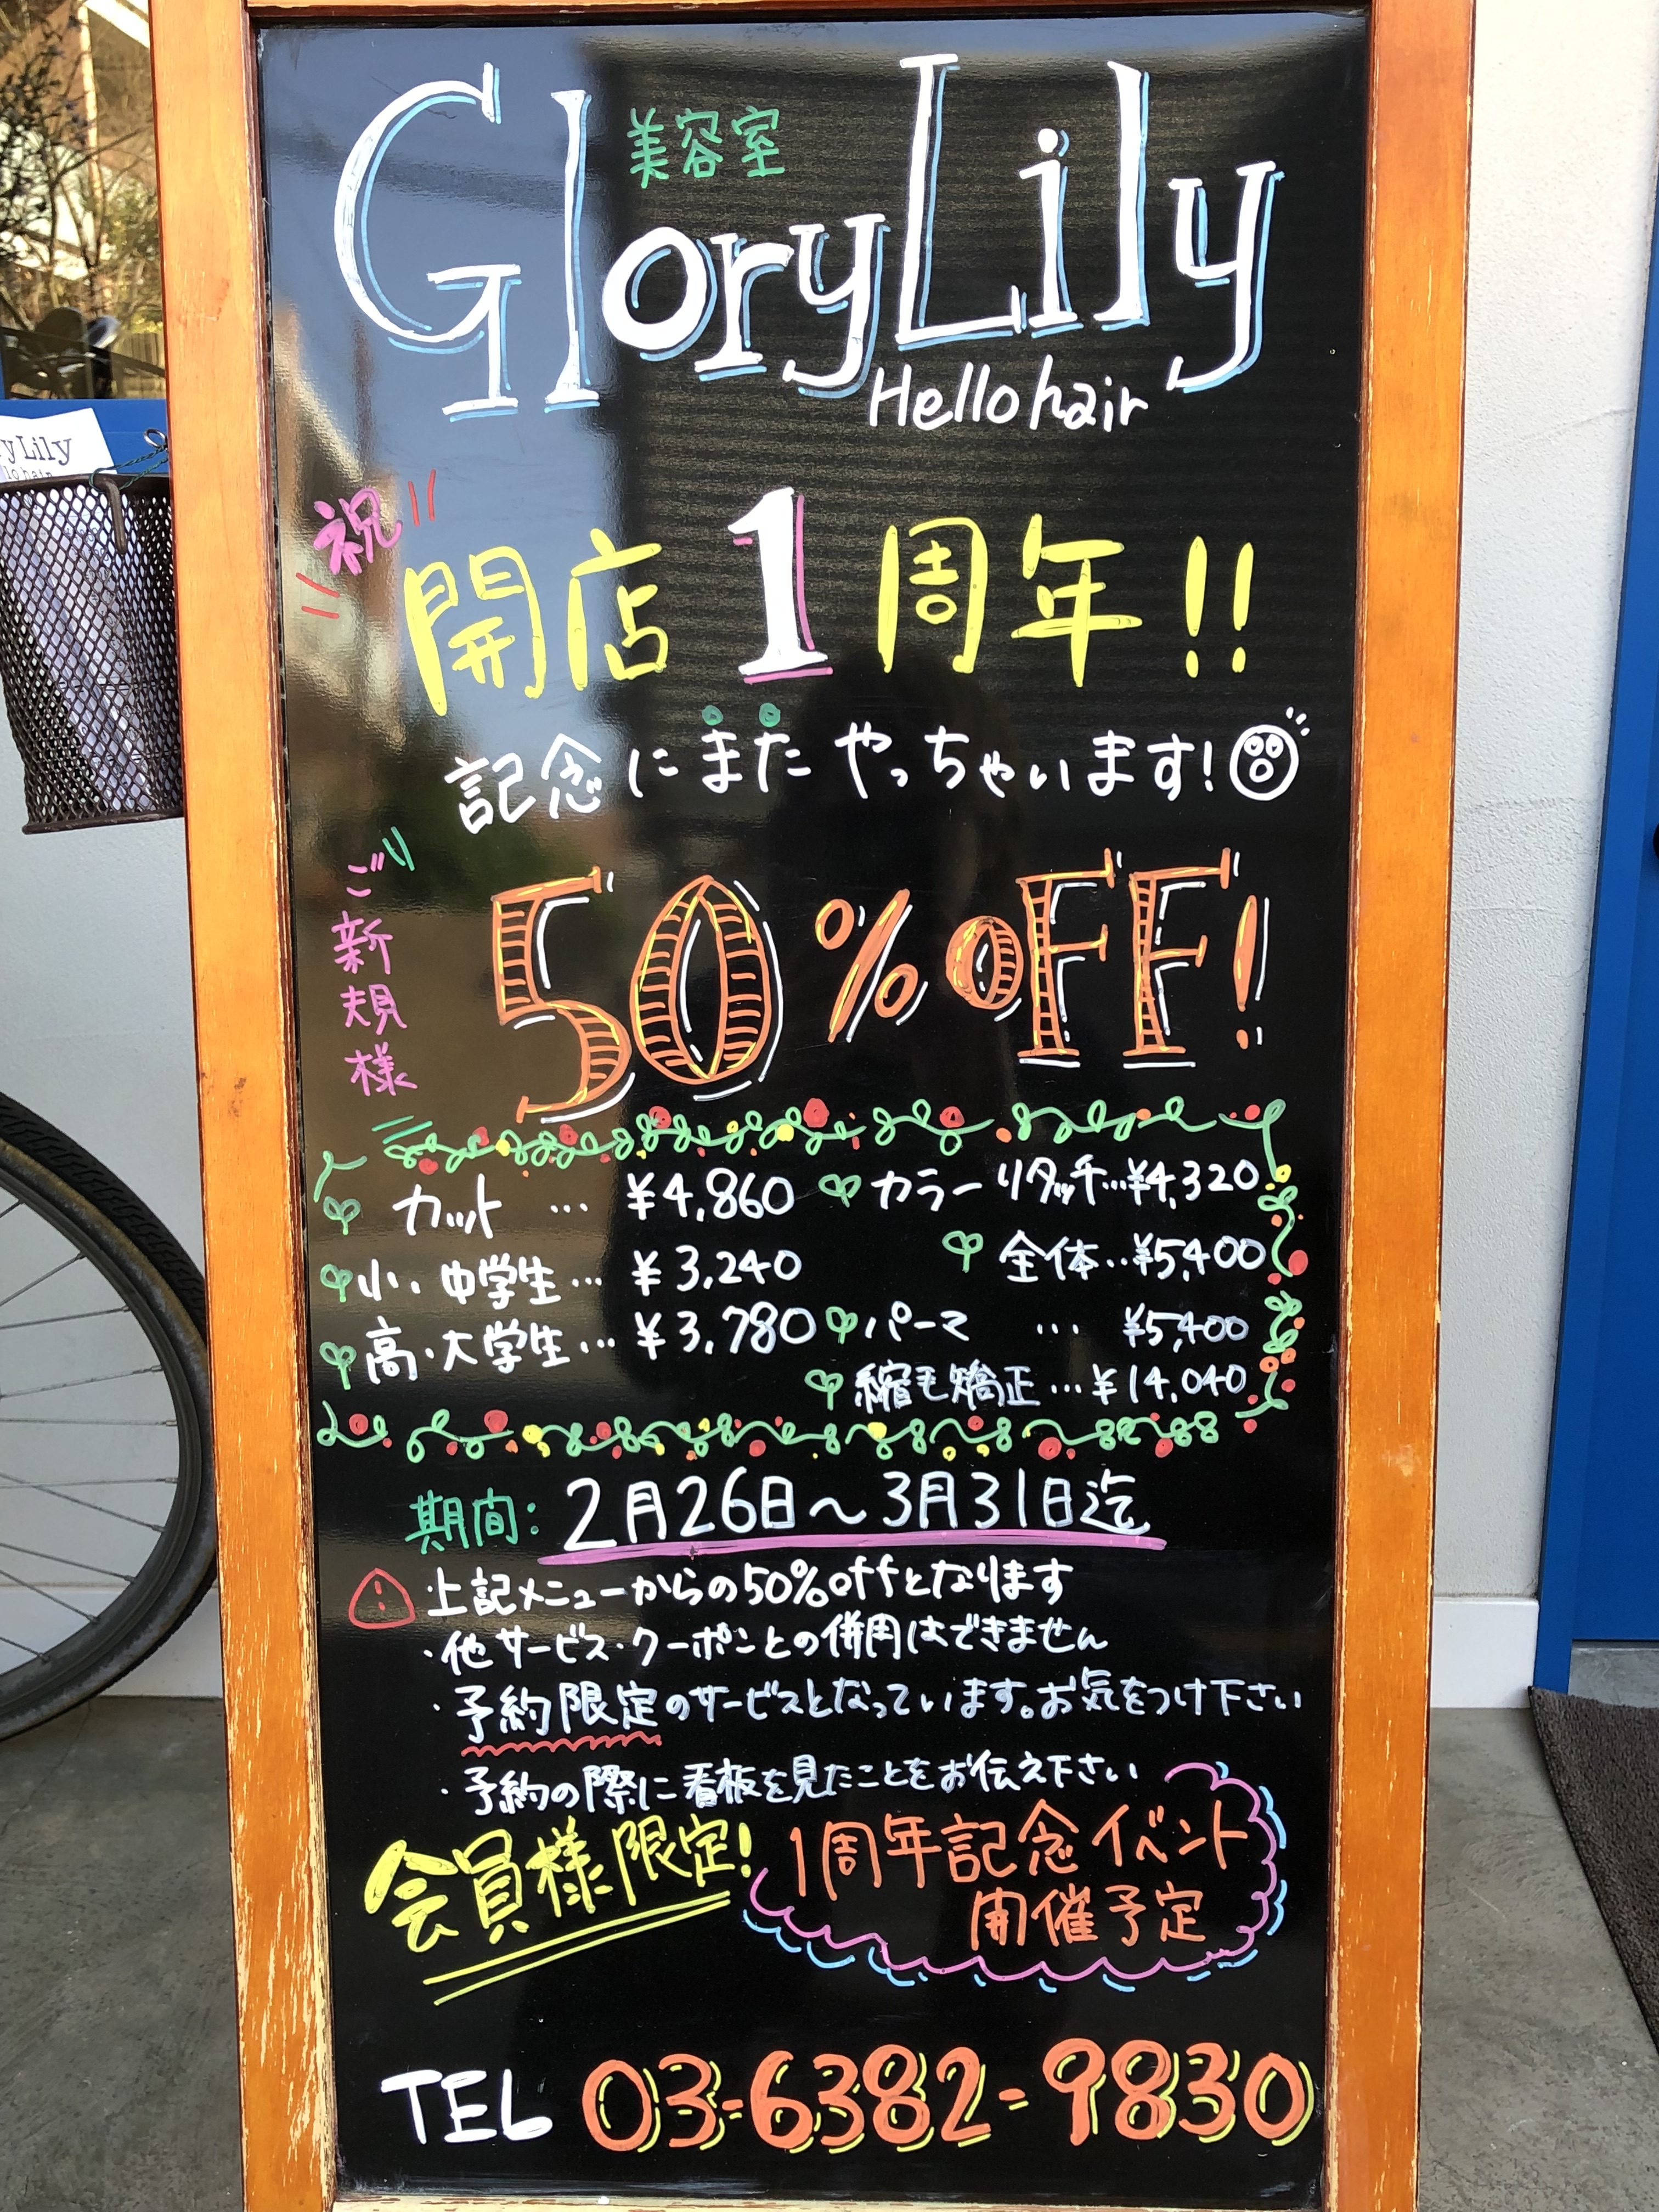 美容室
GloryLily
Hello hair
祝
開店1周年!!
記念にまたやっちゃいます!
ご新規様
50%OFF!
カット … ¥4,860
小・中学生… ¥3,240
高・大学生… ¥3,780
カラー リタッチ…¥4,320
全体…¥5,400
パーマ … ¥5,400
縮毛矯正…¥14,040
期間: 2月26日～3月31日迄
・上記メニューからの50%offとなります
・他サービス・クーポンとの併用はできません
・予約限定のサービスとなっています。お気をつけ下さい
・予約の際に看板を見たことをお伝え下さい
会員様限定!
1周年記念イベント
開催予定
TEL 03-6382-9830
y Lily
lo hair